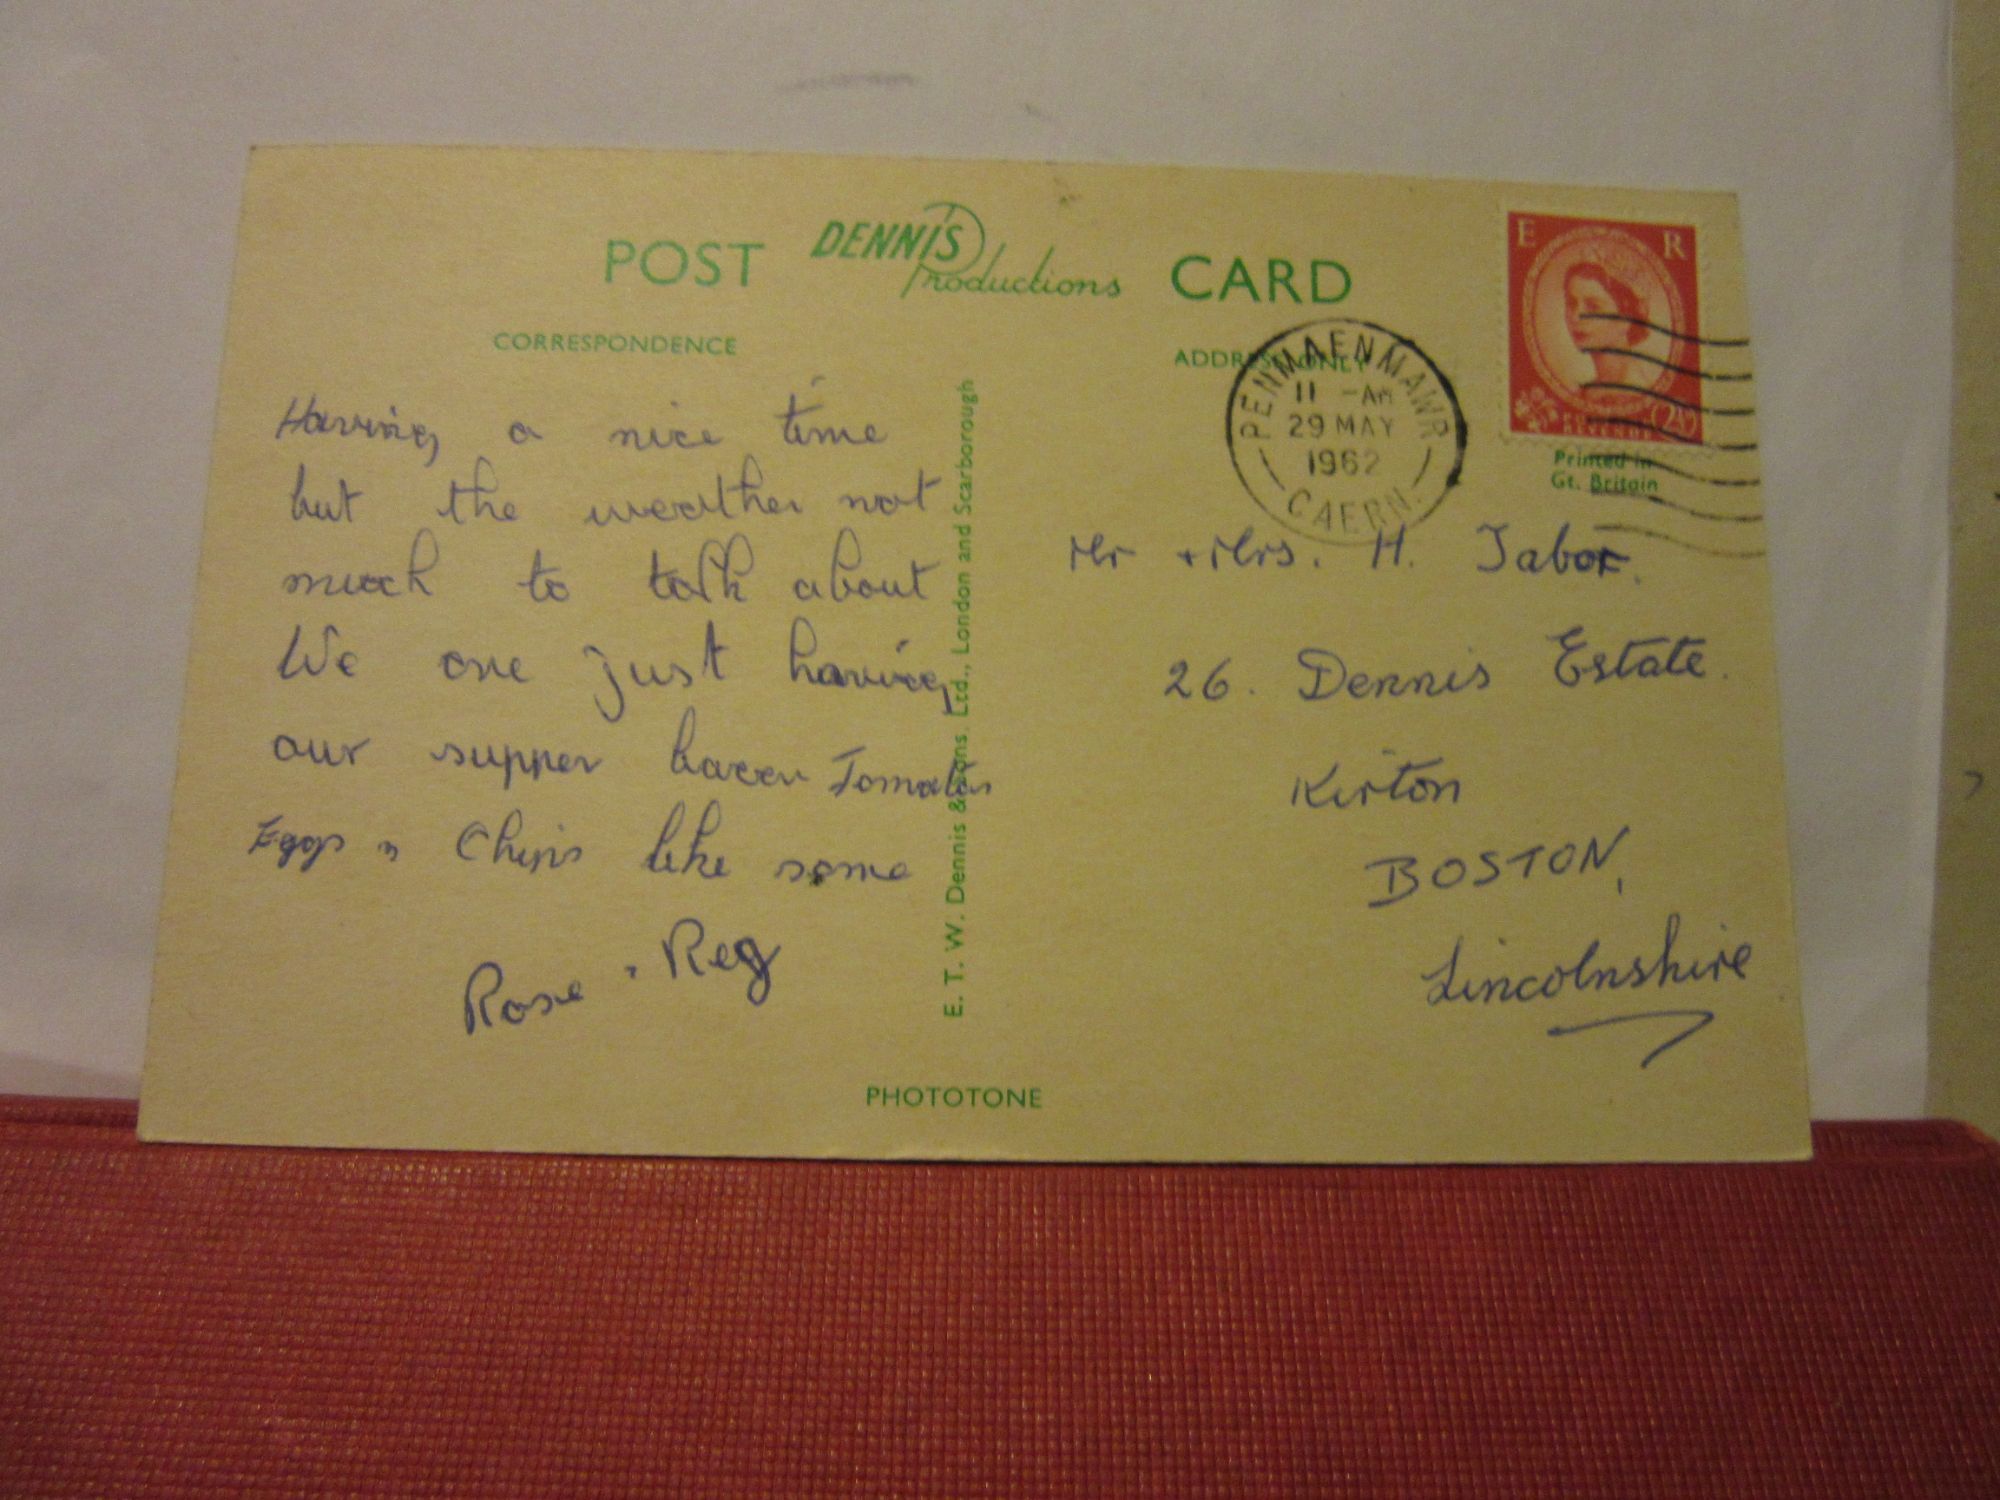 POST DENNIS Productions CARD
CORRESPONDENCE
Having a nice time
but the weather not
much to talk about
We are just having
our supper bacon Tomatoes
Eggs n Chips like some
Rose . Reg
E. T. W. Dennis & Sons. Ltd., London and Scarborough
PHOTOTONE
ADDRESS ONLY
PENMAENMAWR
11 -AM
29 MAY
1962
CAERN.
E R
POSTAGE
REVENUE
2½D
Printed in
Gt. Britain
Mr + Mrs. H. Tabor.
26. Dennis Estate.
Kirton
BOSTON,
Lincolnshire